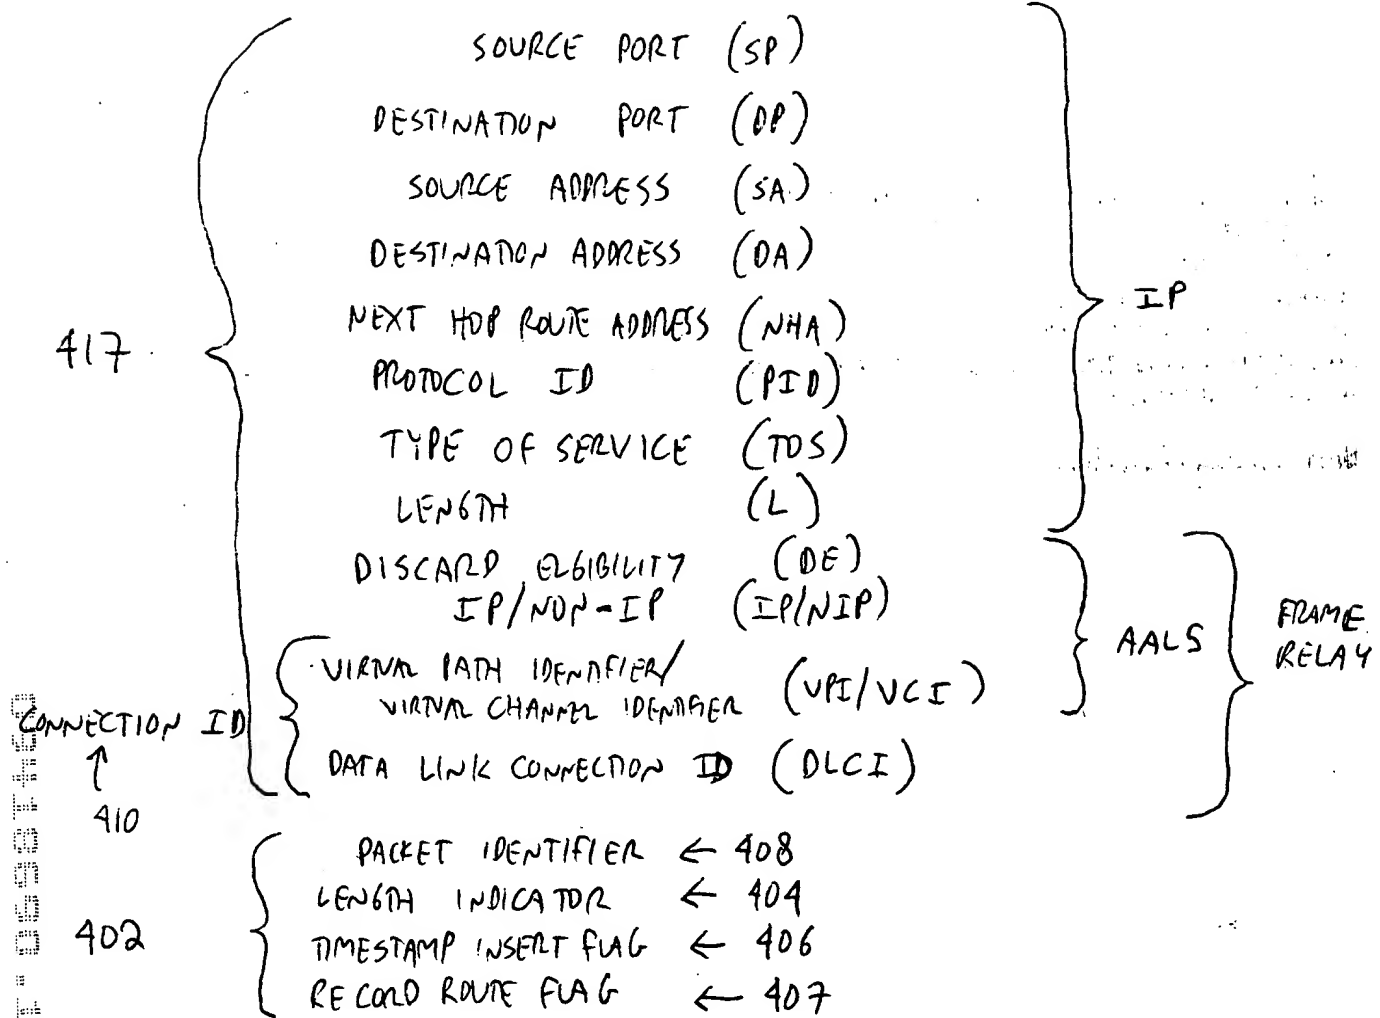 SOURCE PORT (SP)
DESTINATION PORT (DP)
SOURCE ADDRESS (SA)
DESTINATION ADDRESS (DA)
NEXT HOP ROUTE ADDRESS (NHA)
IP
417
PROTOCOL ID (PID)
TYPE OF SERVICE (TOS)
LENGTH (L)
DISCARD ELGIBILITY (DE)
IP/NON-IP (IP/NIP)
AAL5
FRAME RELAY
VIRTUAL PATH IDENTIFIER/
VIRTUAL CHANNEL IDENTIFIER (VPI/VCI)
CONNECTION ID
DATA LINK CONNECTION ID (DLCI)
410
PACKET IDENTIFIER ← 408
LENGTH INDICATOR ← 404
402
TIMESTAMP INSERT FLAG ← 406
RECORD ROUTE FLAG ← 407